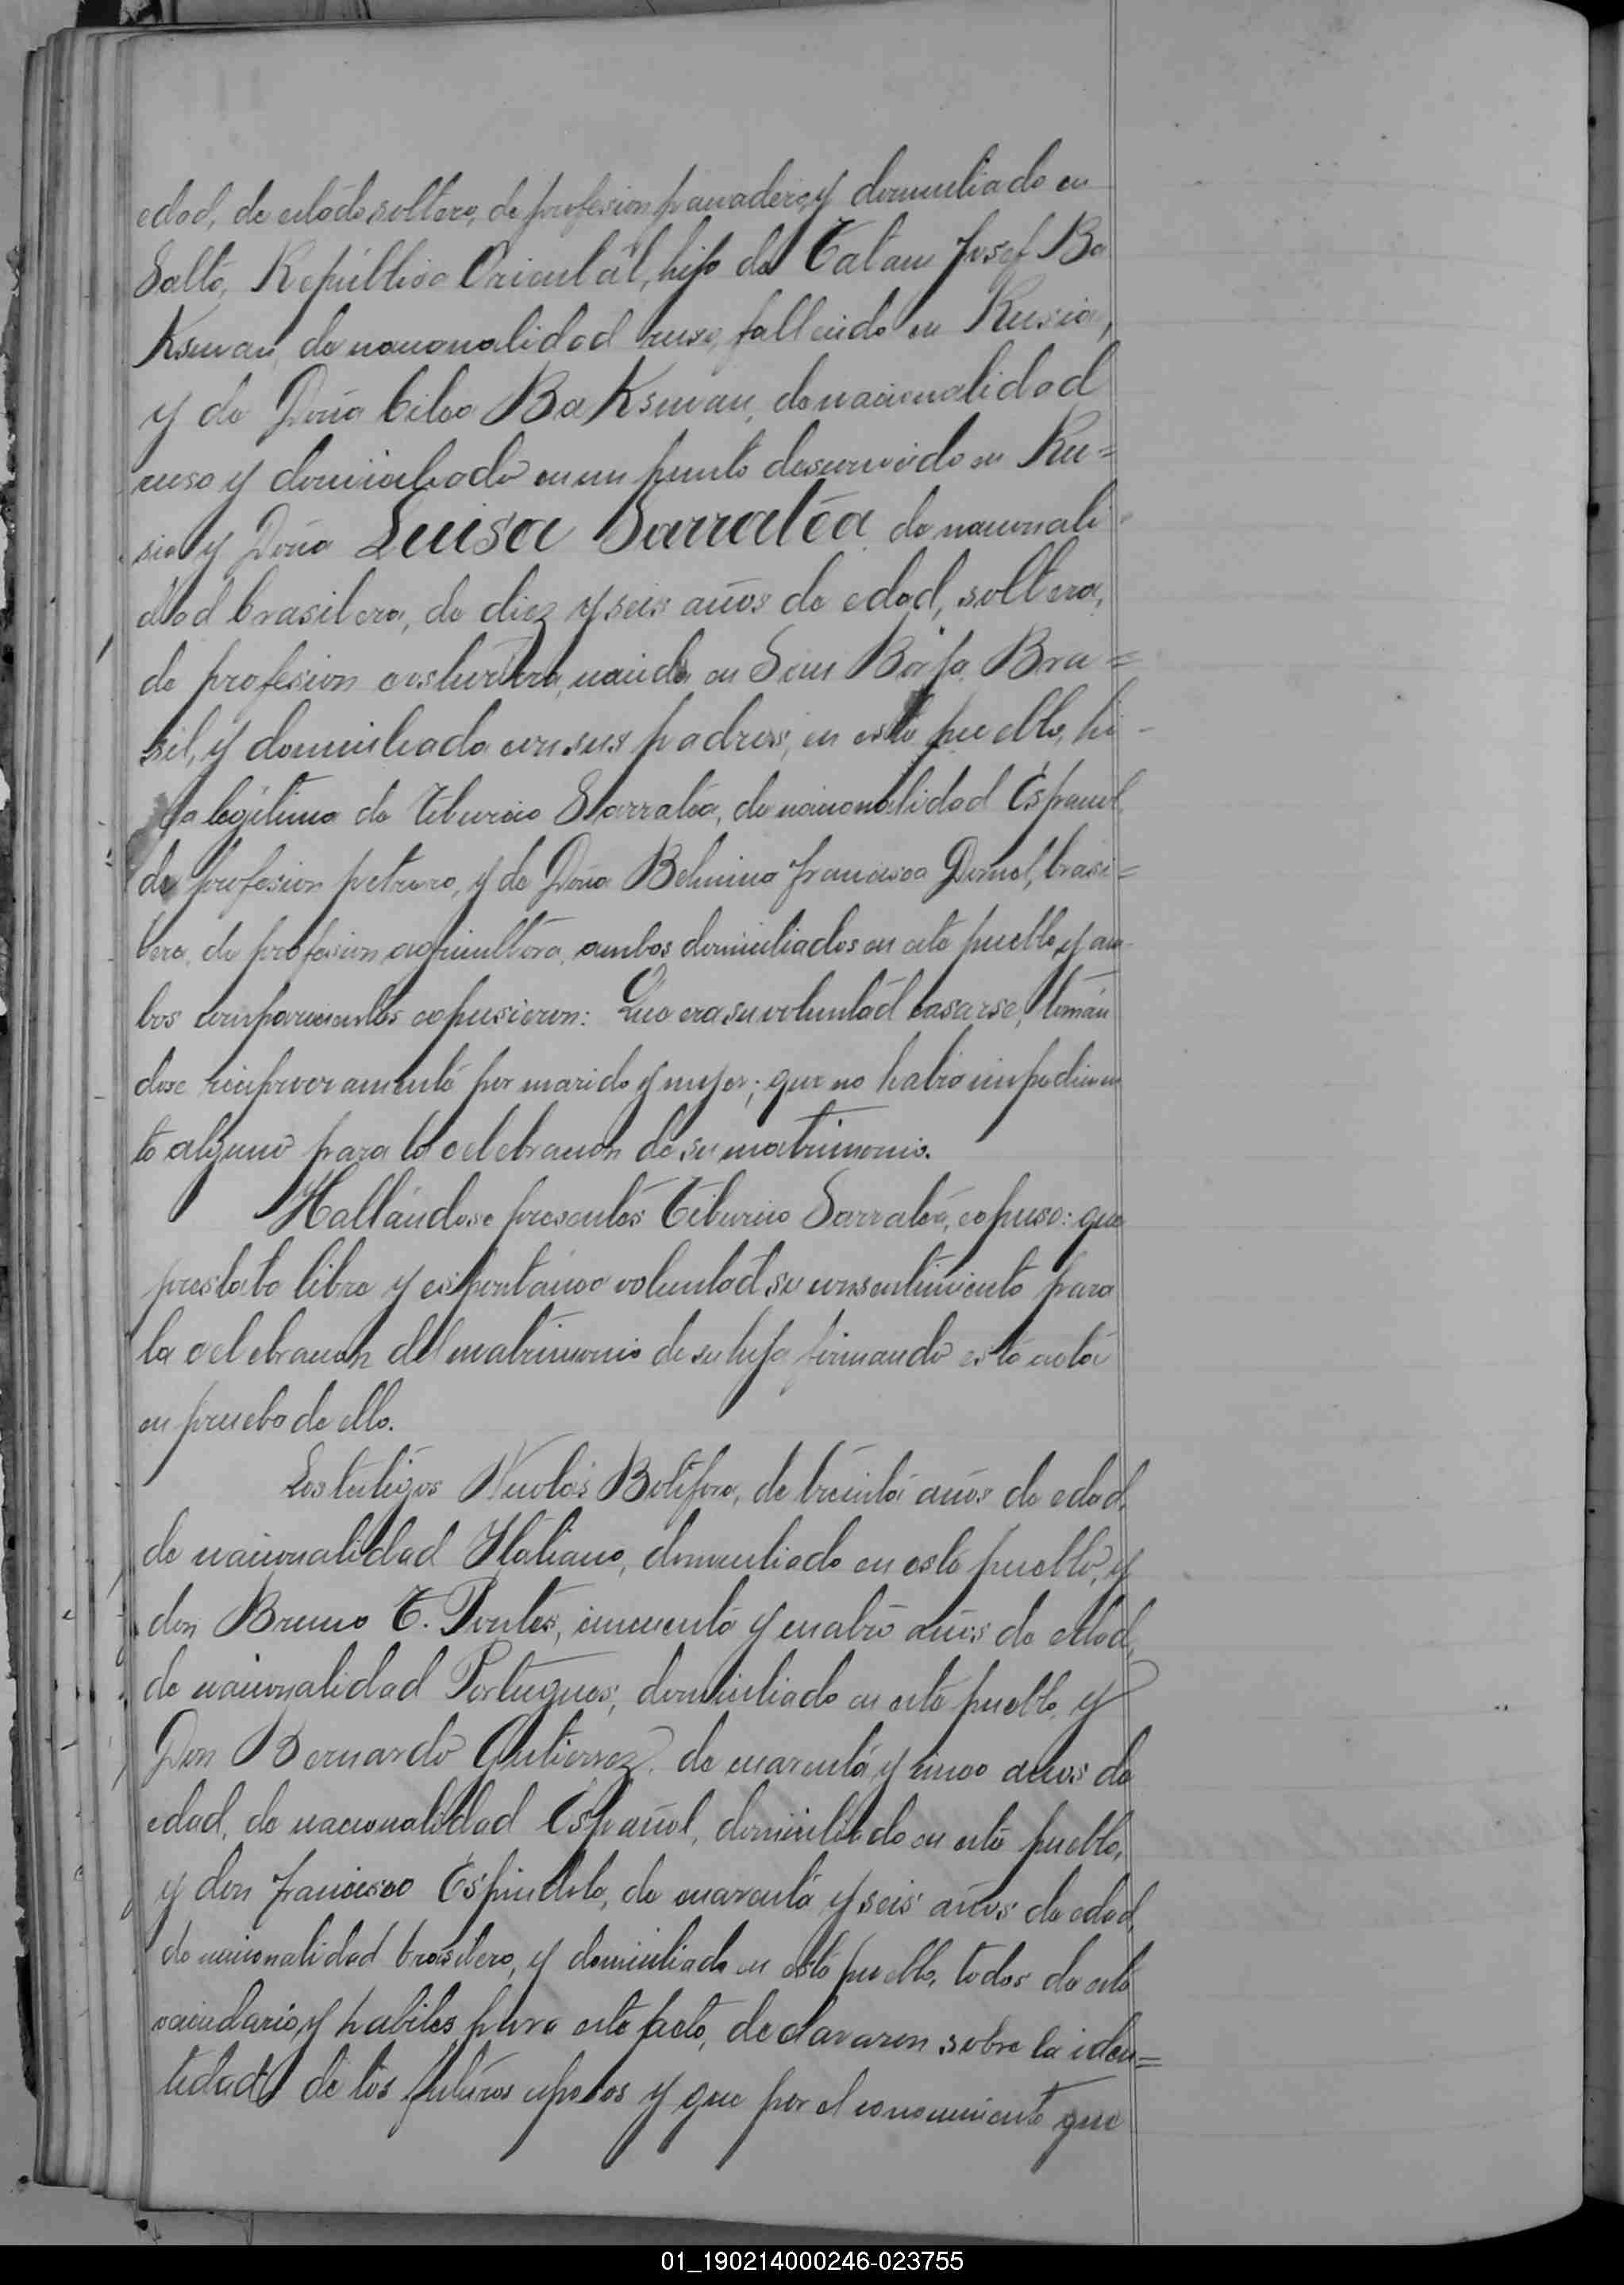 edad, de estado soltero, de profesion panadero, y domiciliado en
Salto, República Oriental, hijo de Catam Josef Ba
Ksman, de nacionalidad rusa, fallecido en Rusia,
y de Doña Cilea BaKsman, de nacionalidad
rusa y domiciliada en un punto desconocido en Ru=
sia y Doña Luisa Sarratéa de nacionali
dad brasilera, de diez y seis años de edad, soltera,
de profesion costurera, nacida en San Borja Bra=
sil, y domiciliada con sus padres, en este pueblo, hi-
ja legítima de Tiburcio Sarratéa, de nacionalidad Español
de profesion, y de Doña Belmina Francisca Dornel, brasi=
lera, de profesion agricultora, ambos domiciliados en este pueblo, y am
bos comparecientes expusieron: Que era su voluntad casarse, tomán
dose reciprocamente por marido y mujer; que no habia impedimen
to alguno para la celebracion de su matrimonio.
Hallándose presentes Tiburcio Sarratéa, expuso: que
prestaba libre y espontánea voluntad su consentimiento para
la celebracion del matrimonio de su hija firmando esta acta
en prueba de ello.
Los testigos Nicolás, de treinta años de edad,
de nacionalidad Italiano, domiciliado en este pueblo, y
don Bruno C. Pontes, cincuenta y cuatro años de edad,
de nacionalidad Portugues, domiciliado en este pueblo, y
Don Bernardo Gutierrez, de cuarenta y cinco años de
edad, de nacionalidad Español, domiciliado en este pueblo,
y don Francisco Espindola, de cuarenta y seis años de edad,
de nacionalidad brasilero, y domiciliado en este pueblo, todos de este
vecindario y habiles para este acto, declararon sobre la iden=
tidad de los futuros esposos y que por el conocimiento que
01_190214000246-023755